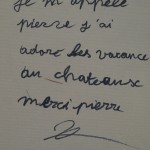 je m'appelle
pierre j'ai
adoré les vacance
au chateaux
merci pierre